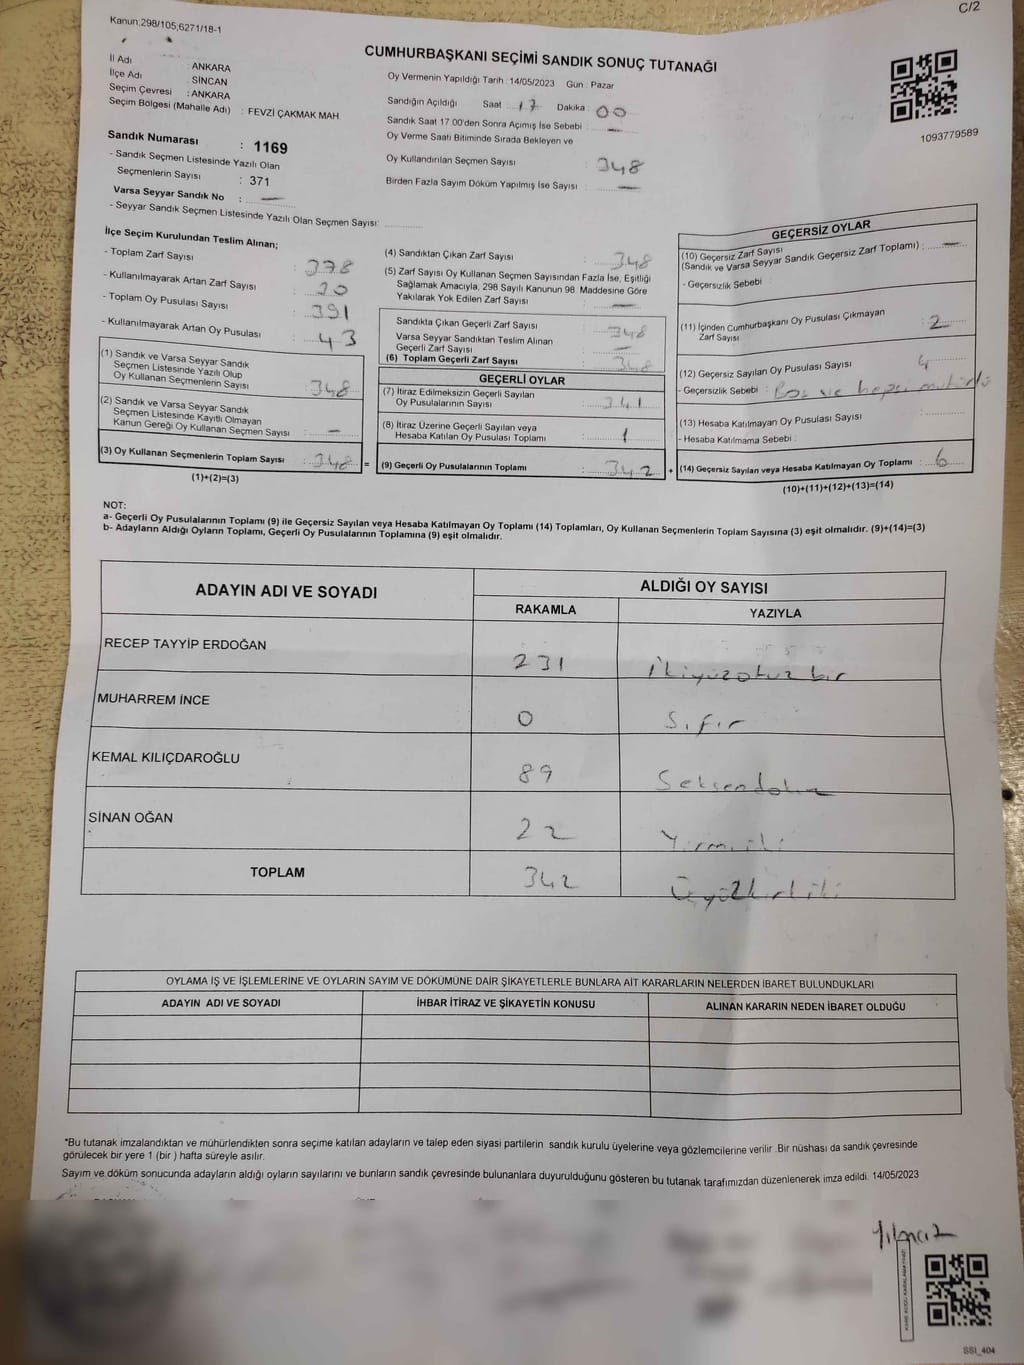 C/2
Kanun;298/105,6271/18-1
CUMHURBAŞKANI SEÇİMİ SANDIK SONUÇ TUTANAĞI
İl Adı : ANKARA
İlçe Adı : SİNCAN
Seçim Çevresi : ANKARA
Seçim Bölgesi (Mahalle Adı) : FEVZİ ÇAKMAK MAH
Sandık Numarası : 1169
- Sandık Seçmen Listesinde Yazılı Olan
Seçmenlerin Sayısı : 371
Varsa Seyyar Sandık No : —
- Seyyar Sandık Seçmen Listesinde Yazılı Olan Seçmen Sayısı:
Oy Vermenin Yapıldığı Tarih : 14/05/2023 Gün : Pazar
Sandığın Açıldığı Saat : 17 Dakika : 00
Sandık Saat 17:00'den Sonra Açımış İse Sebebi : —
Oy Verme Saati Bitiminde Sırada Bekleyen ve
Oy Kullandırılan Seçmen Sayısı : 348
Birden Fazla Sayım Döküm Yapılmış İse Sayısı : —
1093779589
İlçe Seçim Kurulundan Teslim Alınan;
- Toplam Zarf Sayısı : 378
- Kullanılmayarak Artan Zarf Sayısı : 30
- Toplam Oy Pusulası Sayısı : 391
- Kullanılmayarak Artan Oy Pusulası : 43
(1) Sandık ve Varsa Seyyar Sandık
Seçmen Listesinde Yazılı Olup
Oy Kullanan Seçmenlerin Sayısı : 348
(2) Sandık ve Varsa Seyyar Sandık
Seçmen Listesinde Kayıtlı Olmayan
Kanun Gereği Oy Kullanan Seçmen Sayısı : —
(3) Oy Kullanan Seçmenlerin Toplam Sayısı : 348 =
(1)+(2)=(3)
(4) Sandıktan Çıkan Zarf Sayısı : 348
(5) Zarf Sayısı Oy Kullanan Seçmen Sayısından Fazla İse, Eşitliği
Sağlamak Amacıyla, 298 Sayılı Kanunun 98. Maddesine Göre
Yakılarak Yok Edilen Zarf Sayısı : —
Sandıkta Çıkan Geçerli Zarf Sayısı : 348
Varsa Seyyar Sandıktan Teslim Alınan
Geçerli Zarf Sayısı : —
(6) Toplam Geçerli Zarf Sayısı : 348
GEÇERLİ OYLAR
(7) İtiraz Edilmeksizin Geçerli Sayılan
Oy Pusulalarının Sayısı : 341
(8) İtiraz Üzerine Geçerli Sayılan veya
Hesaba Katılan Oy Pusulası Toplamı : 1
(9) Geçerli Oy Pusulalarının Toplamı : 342 +
GEÇERSİZ OYLAR
(10) Geçersiz Zarf Sayısı
(Sandık ve Varsa Seyyar Sandık Geçersiz Zarf Toplamı) : —
- Geçersizlik Sebebi
(11) İçinden Cumhurbaşkanı Oy Pusulası Çıkmayan
Zarf Sayısı : 2
(12) Geçersiz Sayılan Oy Pusulası Sayısı : 4
- Geçersizlik Sebebi : Boş ve hepsi mühürlü
(13) Hesaba Katılmayan Oy Pusulası Sayısı
- Hesaba Katılmama Sebebi :
(14) Geçersiz Sayılan veya Hesaba Katılmayan Oy Toplamı : 6
(10)+(11)+(12)+(13)=(14)
NOT:
a- Geçerli Oy Pusulalarının Toplamı (9) ile Geçersiz Sayılan veya Hesaba Katılmayan Oy Toplamı (14) Toplamları, Oy Kullanan Seçmenlerin Toplam Sayısına (3) eşit olmalıdır. (9)+(14)=(3)
b- Adayların Aldığı Oyların Toplamı, Geçerli Oy Pusulalarının Toplamına (9) eşit olmalıdır.
ADAYIN ADI VE SOYADI ALDIĞI OY SAYISI
RAKAMLA YAZIYLA
RECEP TAYYİP ERDOĞAN 231 İkiyüzotuzbir
MUHARREM İNCE 0 Sıfır
KEMAL KILIÇDAROĞLU 89 Seksendokuz
SİNAN OĞAN 22 Yirmiiki
TOPLAM 342 Üçyüzkırkiki
OYLAMA İŞ VE İŞLEMLERİNE VE OYLARIN SAYIM VE DÖKÜMÜNE DAİR ŞİKAYETLERLE BUNLARA AİT KARARLARIN NELERDEN İBARET BULUNDUKLARI
ADAYIN ADI VE SOYADI İHBAR İTİRAZ VE ŞİKAYETİN KONUSU ALINAN KARARIN NEDEN İBARET OLDUĞU
*Bu tutanak imzalandıktan ve mühürlendikten sonra seçime katılan adayların ve talep eden siyasi partilerin sandık kurulu üyelerine veya gözlemcilerine verilir .Bir nüshası da sandık çevresinde
görülecek bir yere 1 (bir ) hafta süreyle asılır.
Sayım ve döküm sonucunda adayların aldığı oyların sayılarını ve bunların sandık çevresinde bulunanlara duyurulduğunu gösteren bu tutanak tarafımızdan düzenlenerek imza edildi. 14/05/2023
Yılmaz
SSI_404